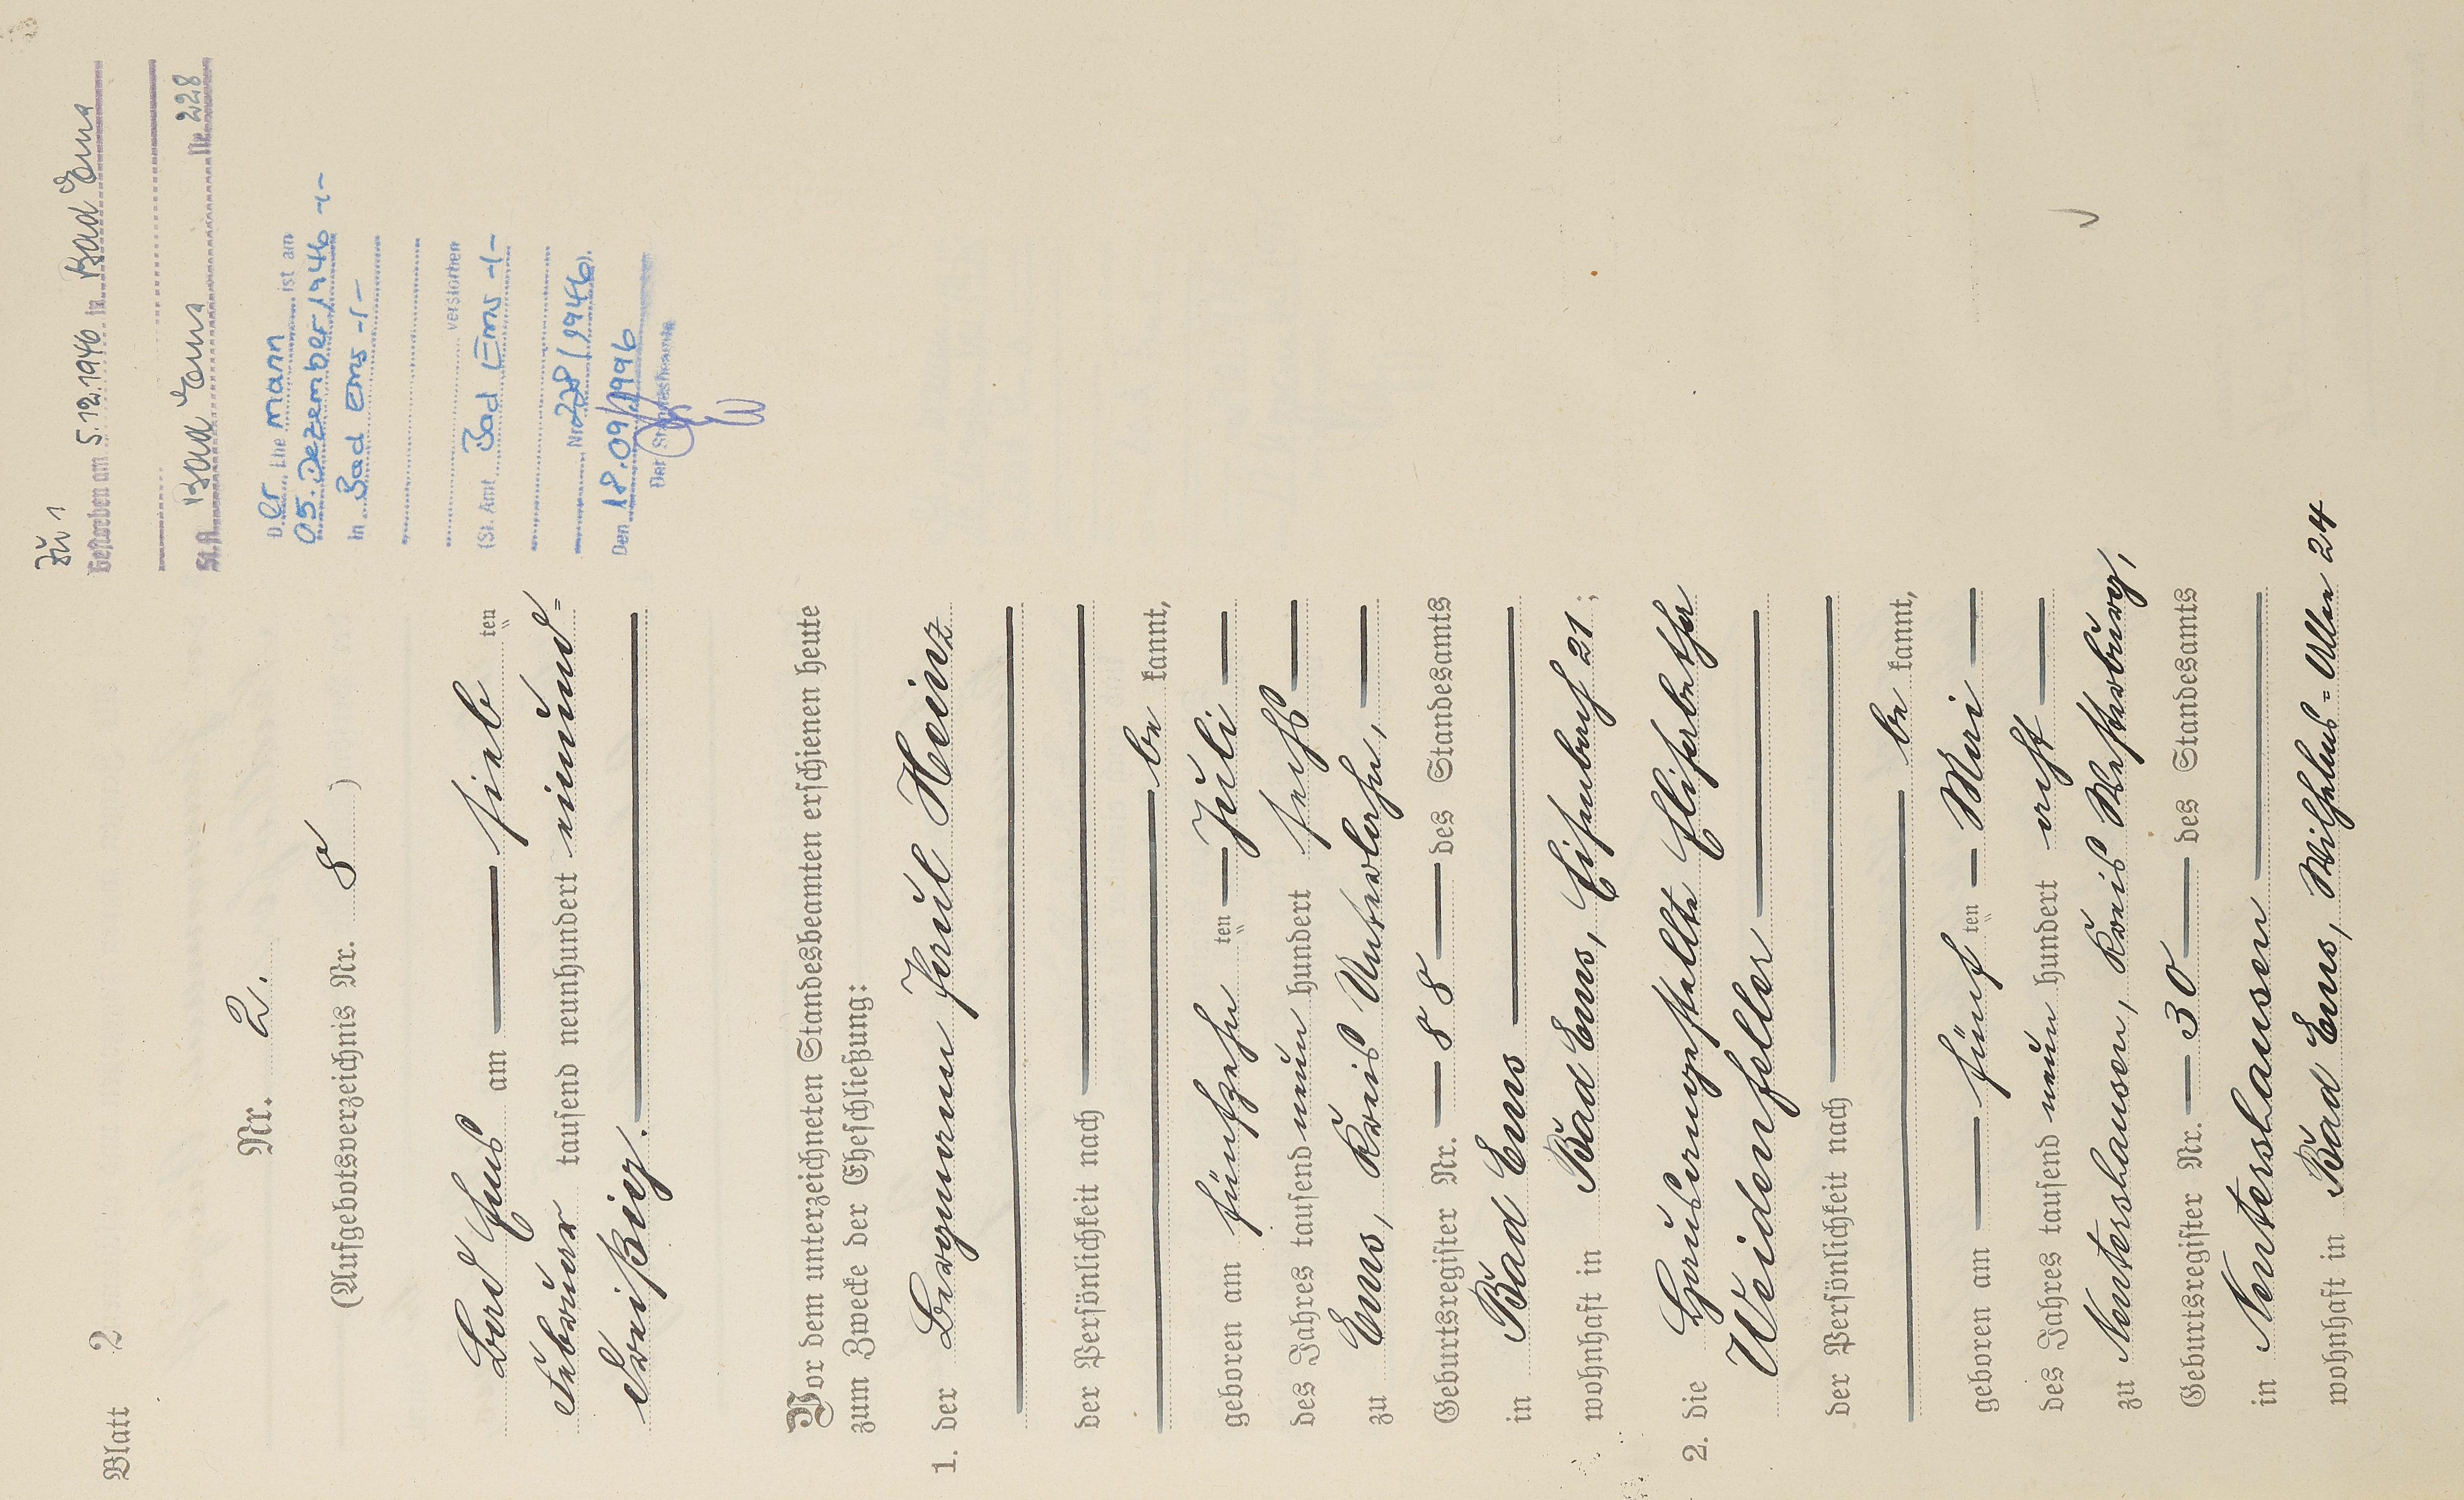 Blatt 2
Nr. 2.
(Aufgebotsverzeichnis Nr. 8)
Bad Ems am sieb ten
Februar tausend neunhundert einund=
dreißig.
Vor dem unterzeichneten Standesbeamten erschienen heute
zum Zwecke der Eheschließung:
1. der Bergmann Paul Heinz
der Persönlichkeit nach
be kannt,
geboren am fünfzehn ten Juli
des Jahres tausend neun hundert sechs
zu Ems, Kreis Unterlahn,
Geburtsregister Nr. 88 des Standesamts
in Bad Ems
wohnhaft in Bad Ems, Eisenbach 21;
2. die Hausangestellte Elisabetha
Weidenfeller
der Persönlichkeit nach
be kannt,
geboren am fünf ten Mai
des Jahres tausend neun hundert acht
zu Nentershausen, Kreis Westerburg,
Geburtsregister Nr. 30 des Standesamts
in Nentershausen
wohnhaft in Bad Ems, Wilhelms=Allee 24
Zu 1
Gestorben am 5.12.1946 in Bad Ems
St.A. Bad Ems Nr. 228
Der Ehemann ist am
05. Dezember 1946 -/-
in Bad Ems -/-
verstorben
(St. Amt Bad Ems -/-
Nr. 228/1946).
Den 18.09.1996
Der Standesbeamte